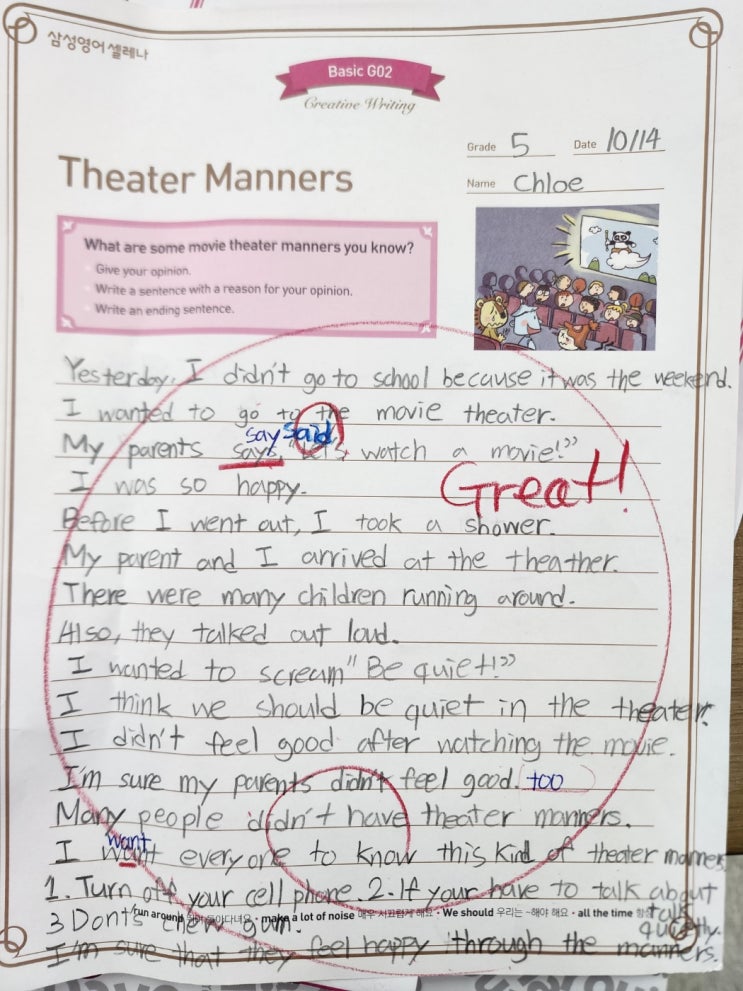 삼성영어 셀레나
Basic G02
Creative Writing
Grade 5 Date 10/14
Theater Manners
Name Chloe
What are some movie theater manners you know?
Give your opinion.
Write a sentence with a reason for your opinion.
Write an ending sentence.
Yesterday, I didn't go to school because it was the weekend.
I wanted to go to the movie theater.
say said
My parents says, "Let's watch a movie!"
Great!
I was so happy.
Before I went out, I took a shower.
My parent and I arrived at the theather.
There were many children running around.
Also, they talked out loud.
I wanted to scream "Be quiet!"
I think we should be quiet in the theater.
I didn't feel good after watching the movie.
I'm sure my parents didn't feel good. too
Many people didn't have theater manners.
want
I want everyone to know this kind of theater manners
1. Turn off your cell phone. 2. If your have to talk about
talk
quietly.
run around · make a lot of noise 매우 시끄럽게 해요 · We should 우리는 ~해야 해요 · all the time
3 Don't chew gum.
I'm sure that they feel happy through the manners.